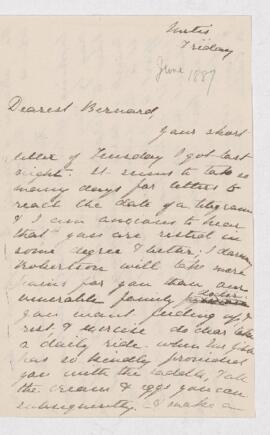 Friday
June 1887
Dearest Bernard,
Your short
letter of Tuesday I got last
night. It seems to take so
many days for letters to
reach the date of a telegram
& I am anxious to hear
that you are rested in
some degree & better. I
Robertson will take more
pains for you than our
venerable family
you want feeding up, &
rest, & exercise do dear take
a daily ride when Mr
has so kindly provided
you with the saddle, & all
the cream & eggs you can
subsequently. I make an